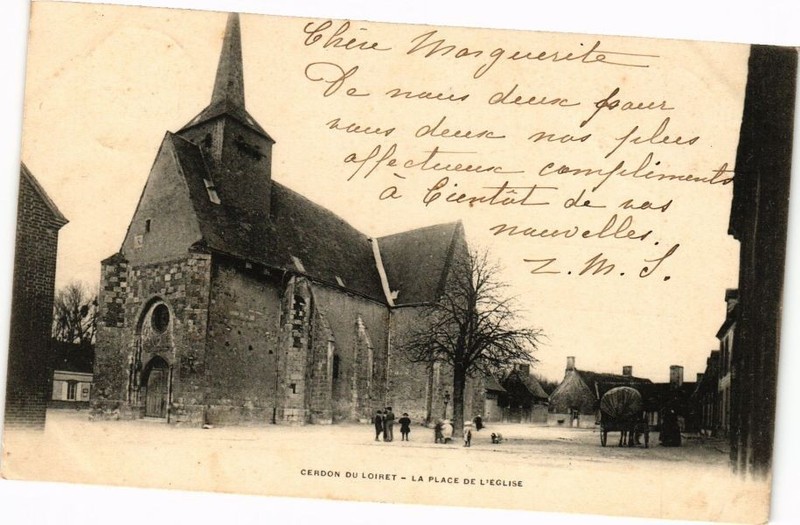 Chère Marguerite
De nous deux pour
vous deux nos plus
affectueux compliments
à bientôt de vos
nouvelles.
L. M. S.
CERDON DU LOIRET – LA PLACE DE L'ÉGLISE